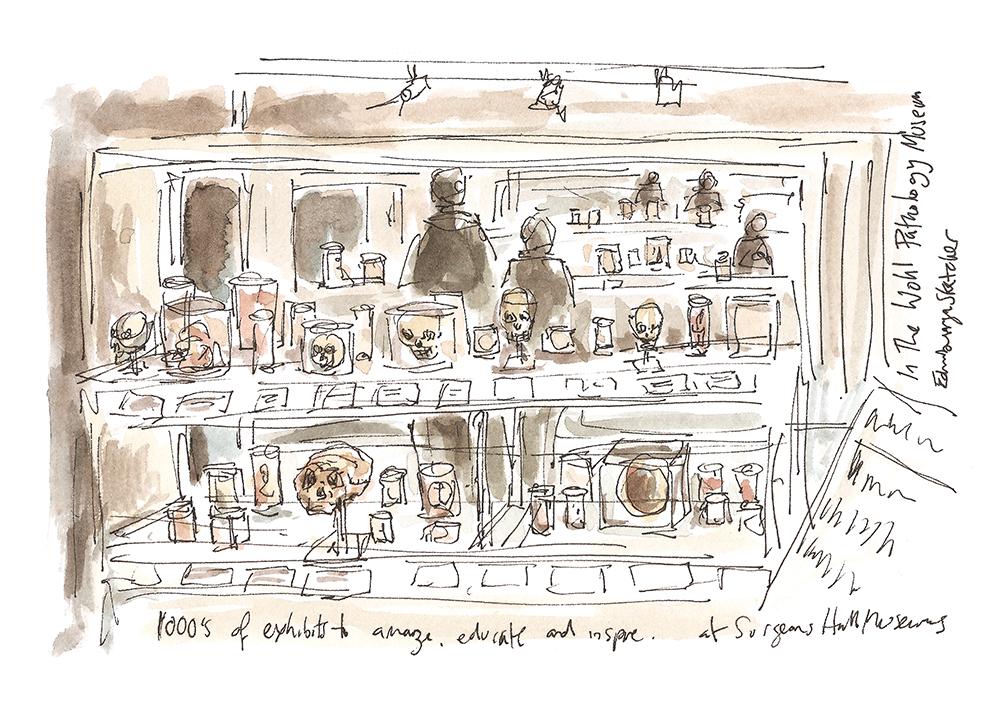 In The Wohl Pathology Museum
EdinburghSketcher
1000's of exhibits to amaze, educate and inspire. at Surgeons Hall Museums